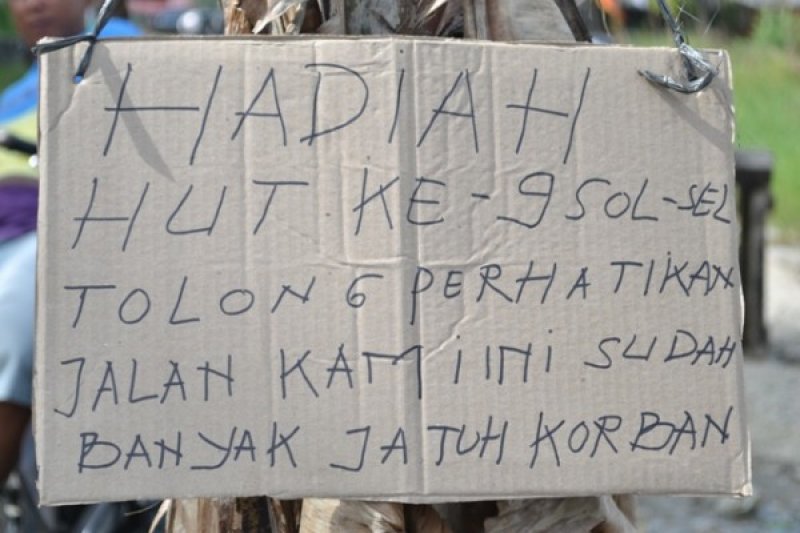 HADIAH
HUT KE-9 SOL-SEL
TOLONG PERHATIKAN
JALAN KAMI INI SUDAH
BANYAK JATUH KORBAN